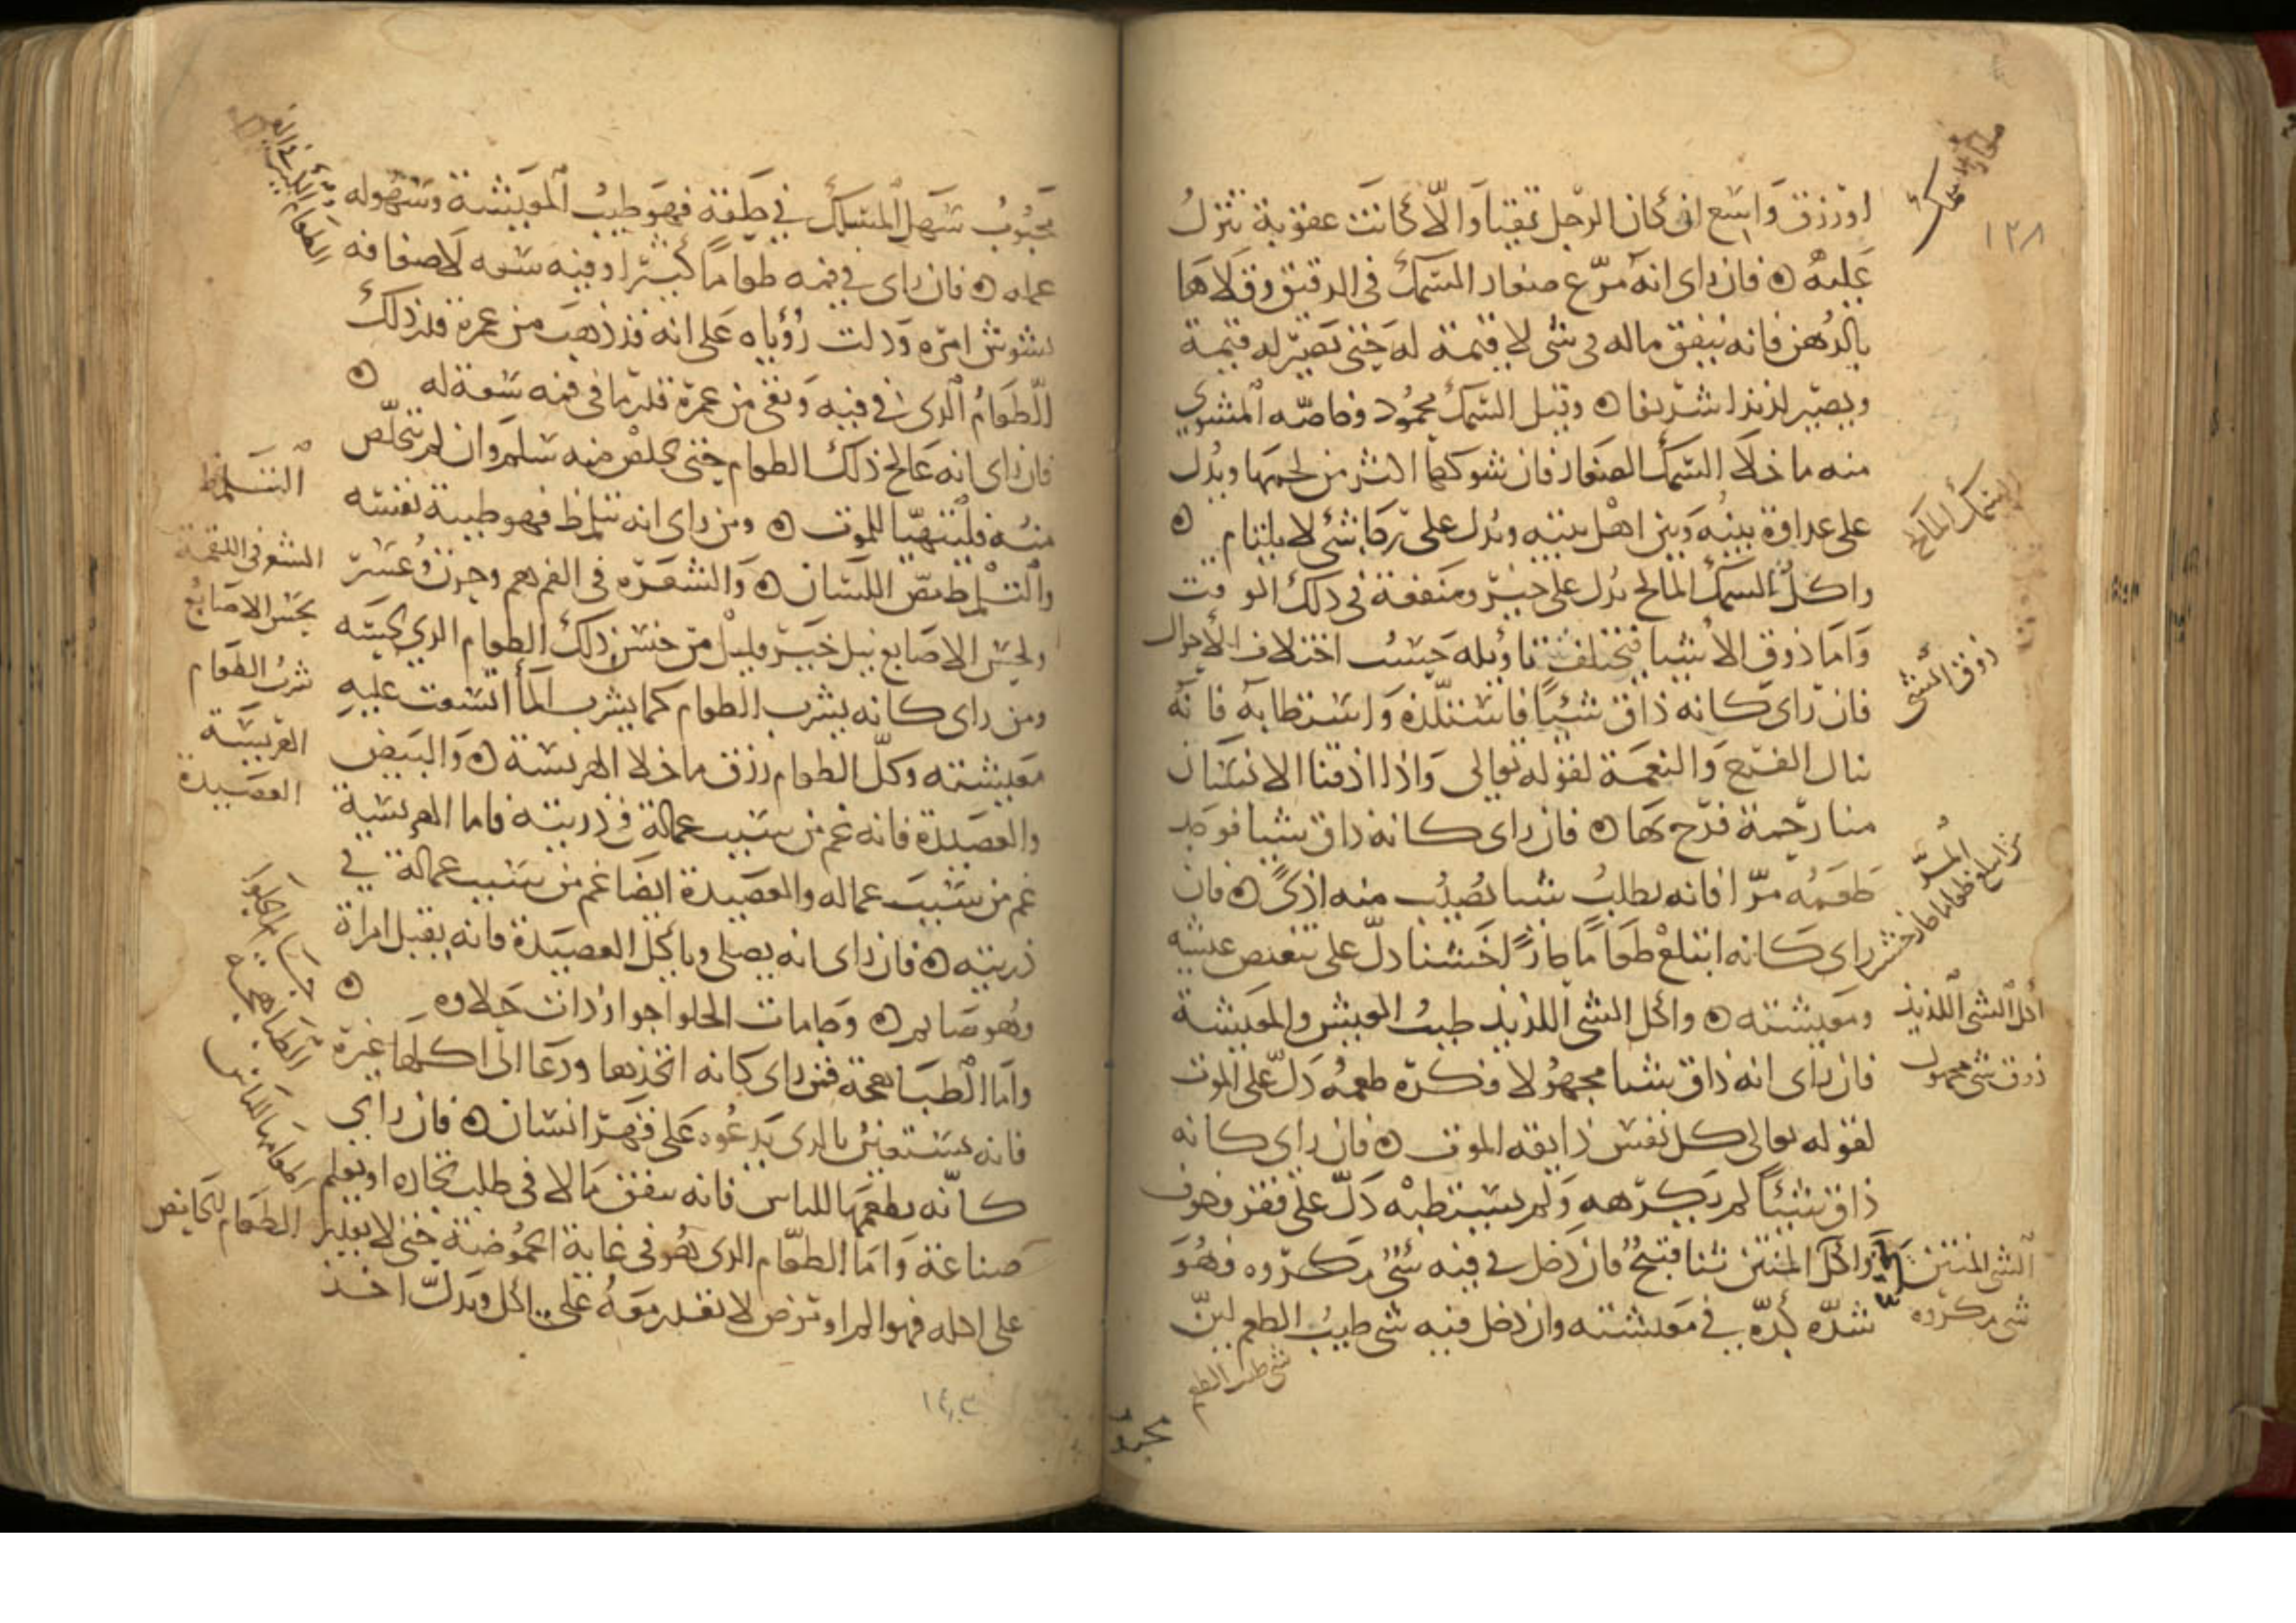 ١٢٨
او رزق واسع ان كان الرجل تقيا والا كانت عقوبة تنزل
عليه ۞ فان راى انه مرغ صغار السمك فى الدقيق وقلاها
بالدهن فانه ينفق ماله فى شى لا قيمة له حتى تصير له قيمة
ويصير لذيذا شريفا ۞ وقيل السمك محمود وخاصه المشوي
منه ما خلا السمك الصغار فان شوكها اكثر من لحمها ويدل
على عداوة بينه وبين اهل بيته ويدل على رجا شى لا يلتام ۞
واكل السمك المالح يدل على خير ومنفعة فى ذلك الوقت
واما ذوق الاشيا فتختلف تاويله حسب اختلاف الاحوال
فان راى كانه ذاق شيئا فاستلذه واستطابه فانه
نال الفرح والنعمة لقوله تعالى واذا اذقنا الانسان
منا رحمة فرح بها ۞ فان راى كانه ذاق شيا فوجد
طعمه مرا فانه يطلب شيا يصيب منه اذى ۞ فان
راى كانه ابتلع طعاما حارا خشنا دل على تنغص عيشه
ومعيشته ۞ واكل الشى اللذيذ طيب العيش والمعيشة
فان راى انه ذاق شيا مجهولا فكره طعمه دل على الموت
لقوله تعالى كل نفس ذايقة الموت ۞ فان راى كانه
ذاق شيئا لم يكرهه ولم يستطبه دل على فقر وخوف
واكل المنتن ثنا قبيح فان دخل فى فيه شى مكروه فهو
شده كره فى معيشته وان دخل فيه شى طيب الطعم لين
السمك المالح
ذوق الشى
المر
اكل الشى اللذيذ
ذوق شى مجهول
الشى المنتن
شى مكروه
شى طيب الطعم
محبوب
محبوب سهل المسلك فى حلقه فهو طيب المعيشة وسهوله
عمله ۞ فان راى فى فمه طعاما كثيرا وفيه سعه لاضعافه
تشوش امره ودلت رؤياه على انه قد ذهب من عمره قدر ذلك
الطعام الذى فى فيه وبقى من عمره قدر ما فى فمه سعة له ۞
فان راى انه عالج ذلك الطعام حتى تخلص منه سلم وان لم يتخلص
منه فليتهيا للموت ۞ ومن راى انه تتلمظ فهو طيبة نفسه
والتلمظ مص اللسان ۞ والشعره فى الفم هم وحزن وعسر
ولحس الاصابع نيل خير قليل من جنس ذلك الطعام الذي لحسه
ومن راى كانه يشرب الطعام كما يشرب الما اتسعت عليه
معيشته وكل الطعام رزق ما خلا الهريسة ۞ والبيض
والعصيدة فانه غم من سبب عماله فى ذريته فاما الهريسة
غم من سبب عماله والعصيدة ايضا غم من سبب عماله فى
ذريته ۞ فان راى انه يصلى وياكل العصيدة فانه يقبل امراة
وهو صايم ۞ وجامات الحلوا جوار ذات حلاوه ۞
واما الطباهجة فمن راى كانه اتخذها ودعا الى اكلها غيره
فانه يستعين بالذى يدعوه على قهر انسان ۞ فان راي
كانه يطعمها للناس فانه ينفق مالا فى طلب تجاره او يعلم
صناعة واما الطعام الذى هو فى غاية الحموضة حتى لا يقدر
على اكله فهو الم او مرض لا يقدر معه على اكل ويدل اخذ
التلمظ
الشعر فى اللقمة
لحس الاصابع
شرب الطعام
الهريسة
العصيدة
الطباهجة
الطعام الحامض